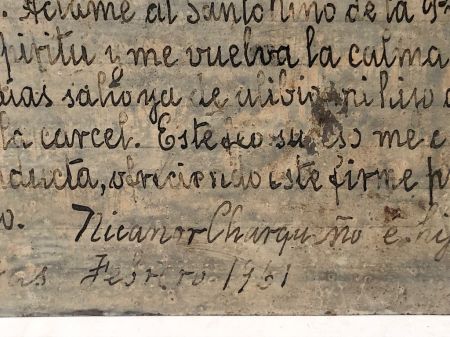 . Aclame al Santo Niño de la
piritu y me vuelva la calma
dias salio ya de alibio mi hiso
la carcel. Este feo suseso me
nducta, ofreciendo este firme p
o. Nicanor Charqueño e hij
as Febrero. 1951